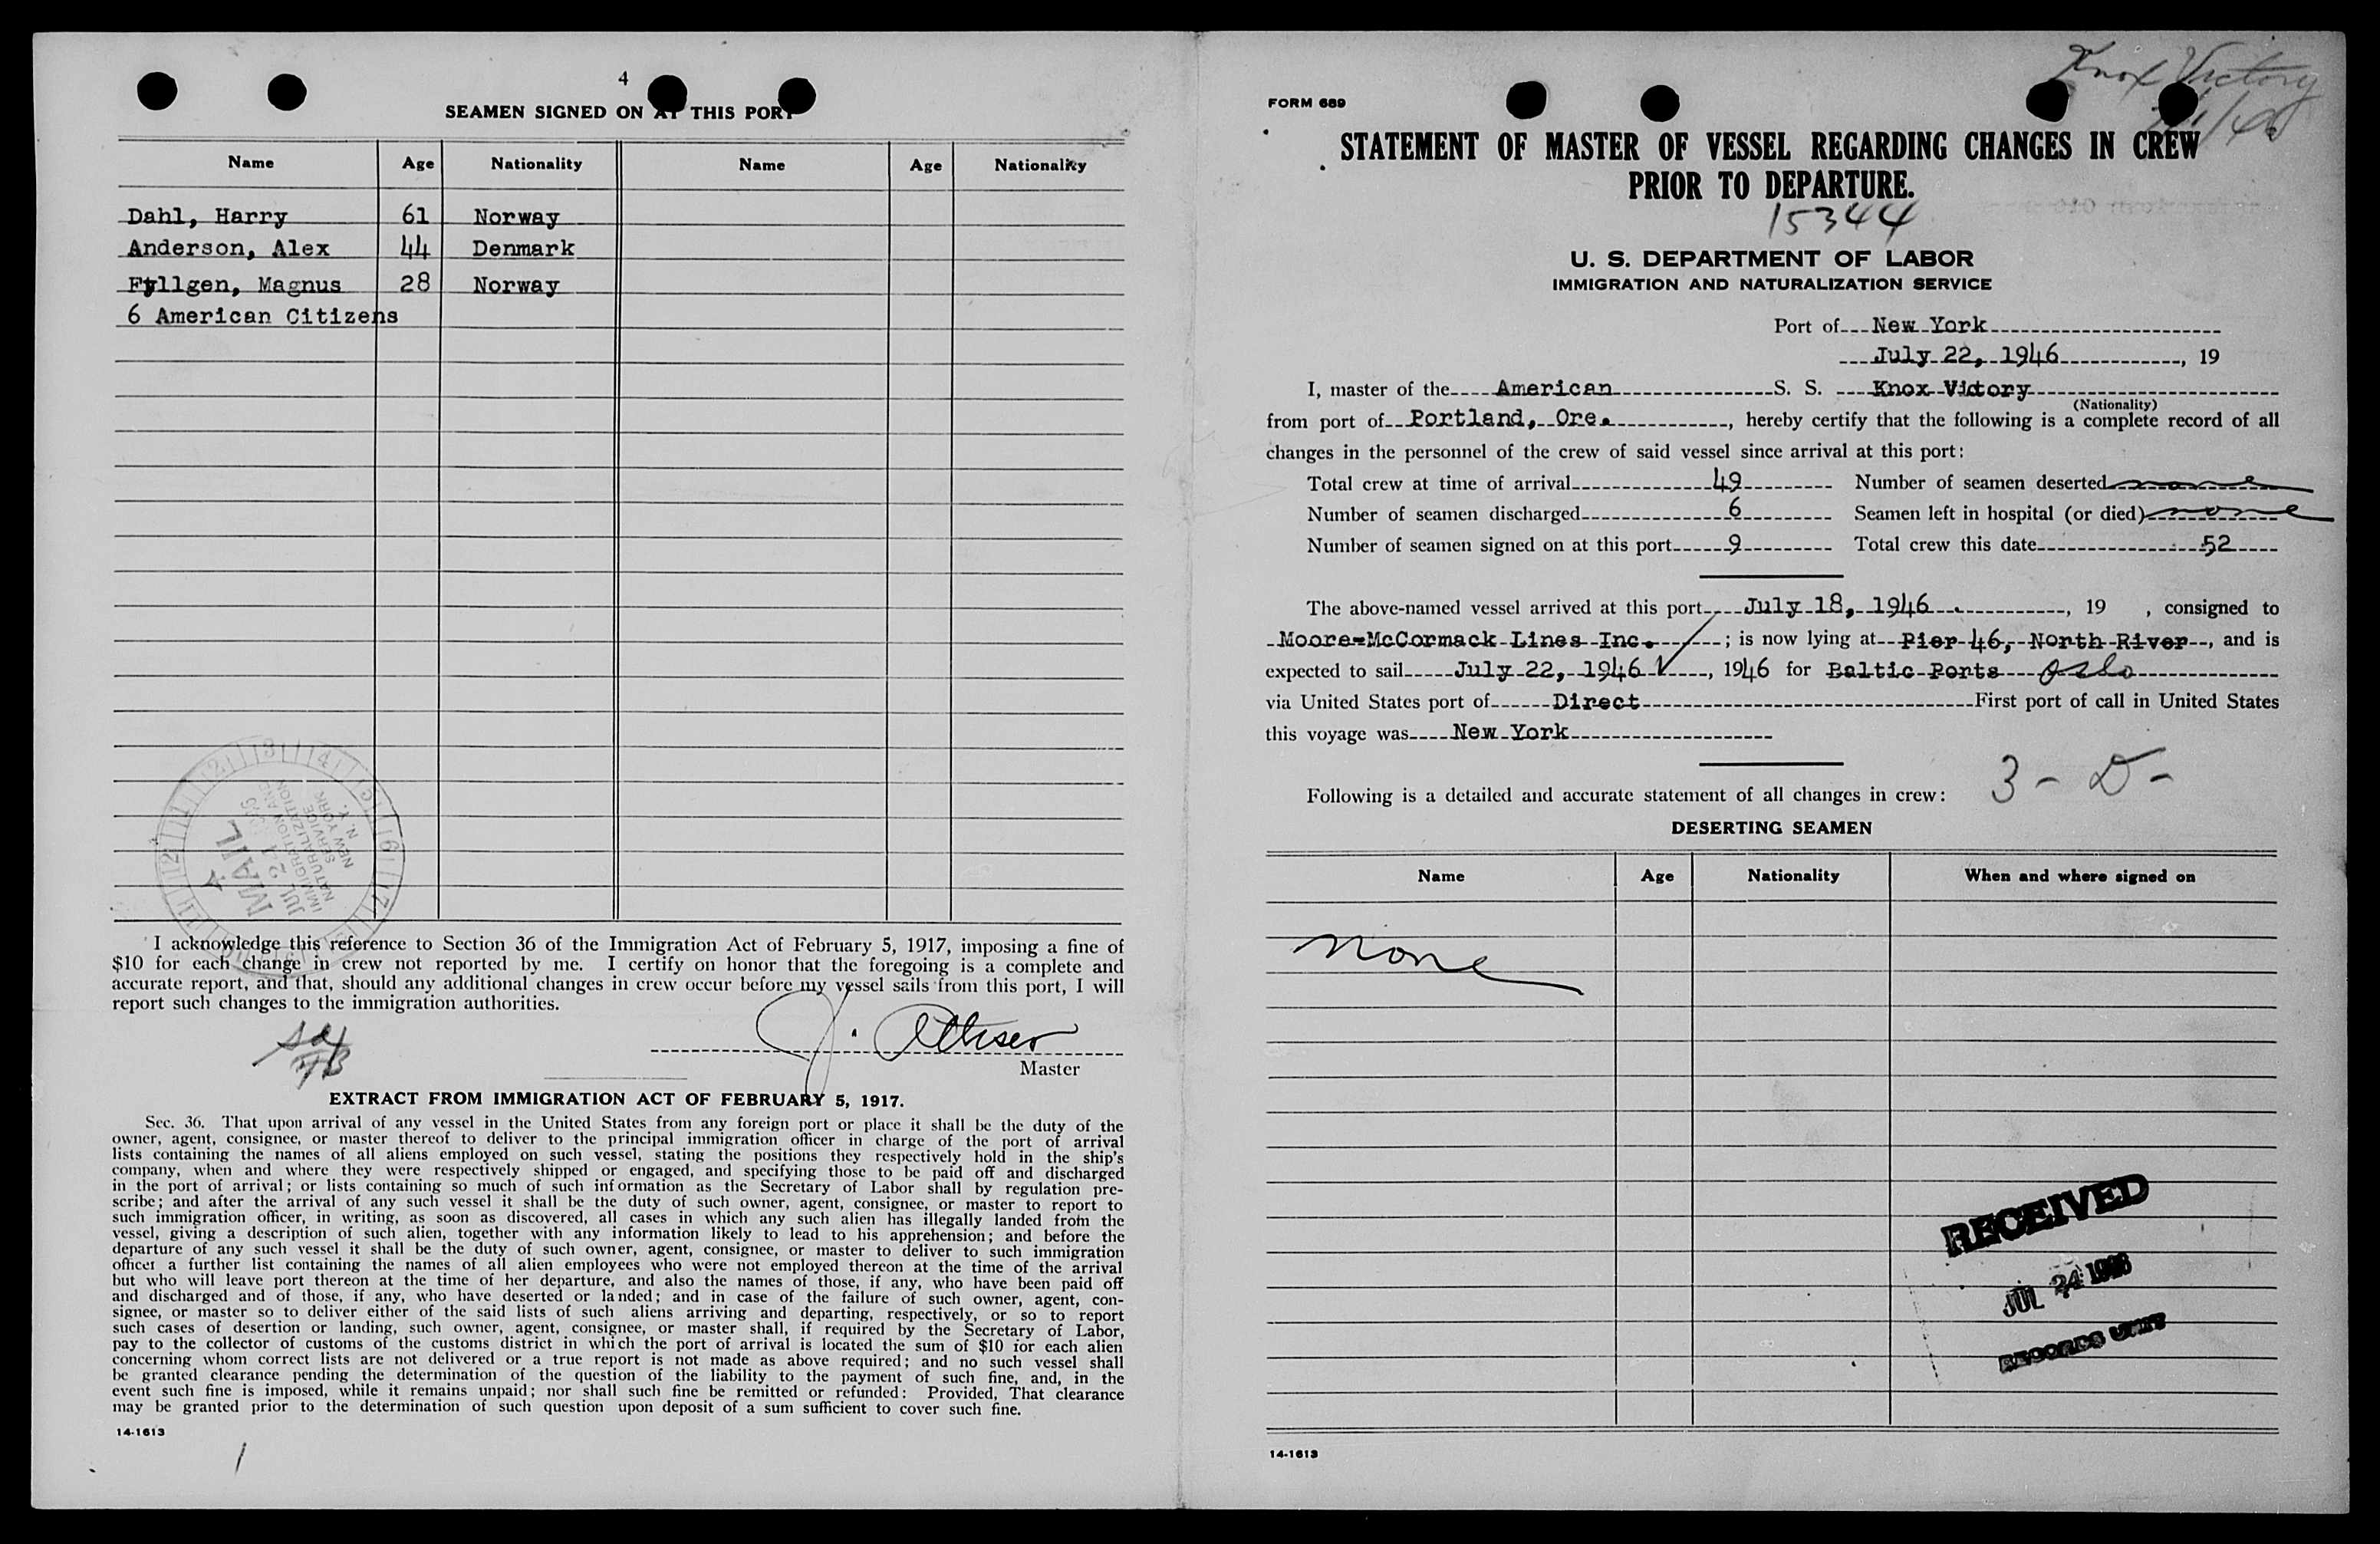 4
SEAMEN SIGNED ON AT THIS PORT
Name Age Nationality Name Age Nationality
Dahl, Harry 61 Norway
Anderson, Alex 44 Denmark
Fyllgen, Magnus 28 Norway
6 American Citizens
MAIL
JUL 24
IMMIGRATION AND
NATURALIZATION
SERVICE
NEW YORK
N. Y.
I acknowledge this reference to Section 36 of the Immigration Act of February 5, 1917, imposing a fine of
$10 for each change in crew not reported by me. I certify on honor that the foregoing is a complete and
accurate report, and that, should any additional changes in crew occur before my vessel sails from this port, I will
report such changes to the immigration authorities.
Master
EXTRACT FROM IMMIGRATION ACT OF FEBRUARY 5, 1917.
Sec. 36. That upon arrival of any vessel in the United States from any foreign port or place it shall be the duty of the
owner, agent, consignee, or master thereof to deliver to the principal immigration officer in charge of the port of arrival
lists containing the names of all aliens employed on such vessel, stating the positions they respectively hold in the ship's
company, when and where they were respectively shipped or engaged, and specifying those to be paid off and discharged
in the port of arrival; or lists containing so much of such information as the Secretary of Labor shall by regulation pre-
scribe; and after the arrival of any such vessel it shall be the duty of such owner, agent, consignee, or master to report to
such immigration officer, in writing, as soon as discovered, all cases in which any such alien has illegally landed from the
vessel, giving a description of such alien, together with any information likely to lead to his apprehension; and before the
departure of any such vessel it shall be the duty of such owner, agent, consignee, or master to deliver to such immigration
officer a further list containing the names of all alien employees who were not employed thereon at the time of the arrival
but who will leave port thereon at the time of her departure, and also the names of those, if any, who have been paid off
and discharged and of those, if any, who have deserted or landed; and in case of the failure of such owner, agent, con-
signee, or master so to deliver either of the said lists of such aliens arriving and departing, respectively, or so to report
such cases of desertion or landing, such owner, agent, consignee, or master shall, if required by the Secretary of Labor,
pay to the collector of customs of the customs district in which the port of arrival is located the sum of $10 for each alien
concerning whom correct lists are not delivered or a true report is not made as above required; and no such vessel shall
be granted clearance pending the determination of the question of the liability to the payment of such fine, and, in the
event such fine is imposed, while it remains unpaid; nor shall such fine be remitted or refunded: Provided, That clearance
may be granted prior to the determination of such question upon deposit of a sum sufficient to cover such fine.
14-1613
Knox Victory
FORM 689
STATEMENT OF MASTER OF VESSEL REGARDING CHANGES IN CREW
PRIOR TO DEPARTURE.
15344
U. S. DEPARTMENT OF LABOR
IMMIGRATION AND NATURALIZATION SERVICE
Port of New York
July 22, 1946, 19
I, master of the American S. S. Knox Victory
(Nationality)
from port of Portland, Ore., hereby certify that the following is a complete record of all
changes in the personnel of the crew of said vessel since arrival at this port:
Total crew at time of arrival 49 Number of seamen deserted none
Number of seamen discharged 6 Seamen left in hospital (or died) none
Number of seamen signed on at this port 9 Total crew this date 52
The above-named vessel arrived at this port July 18, 1946, 19 , consigned to
Moore-McCormack Lines Inc. ; is now lying at Pier 46, North River, and is
expected to sail July 22, 1946, 1946 for Baltic Ports Oslo
via United States port of Direct First port of call in United States
this voyage was New York
Following is a detailed and accurate statement of all changes in crew: 3 - D -
DESERTING SEAMEN
Name Age Nationality When and where signed on
none
RECEIVED
JUL 24 1946
RECORDS UNIT
14-1613